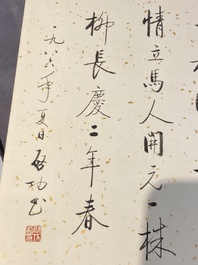 情立馬人開元一株
柳長慶二年春
一九八六年夏日啟功書